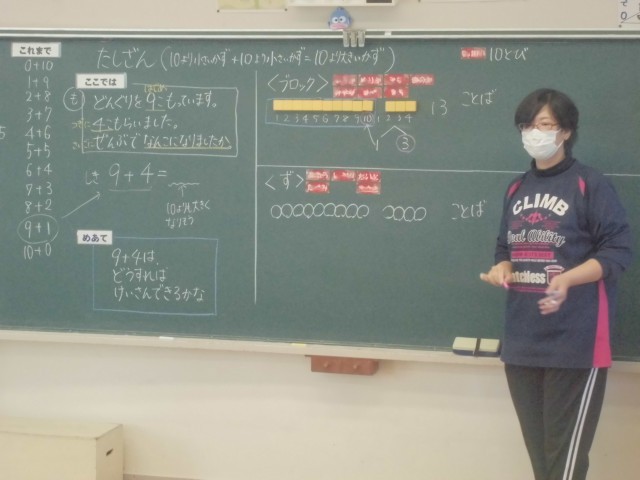 これまで
0+10
1+9
2+8
3+7
4+6
5+5
6+4
7+3
8+2
9+1
10+0
たしざん (10より小さいかず+10より小さいかず=10より大きいかず)
ここでは
はじめに
も どんぐりを9こもっています。
つぎに
4こもらいました。
ぜんぶでなんこになりましたか
しき 9+4=
10より大きく
なりそう
めあて
9+4は、
どうすれば
けいさんできるかな
<ブロック>
1 2 3 4 5 6 7 8 9 10 1 2 3 4
13
1 3
ことば
<ず>
ことば
10とび
CLIMB
Ability